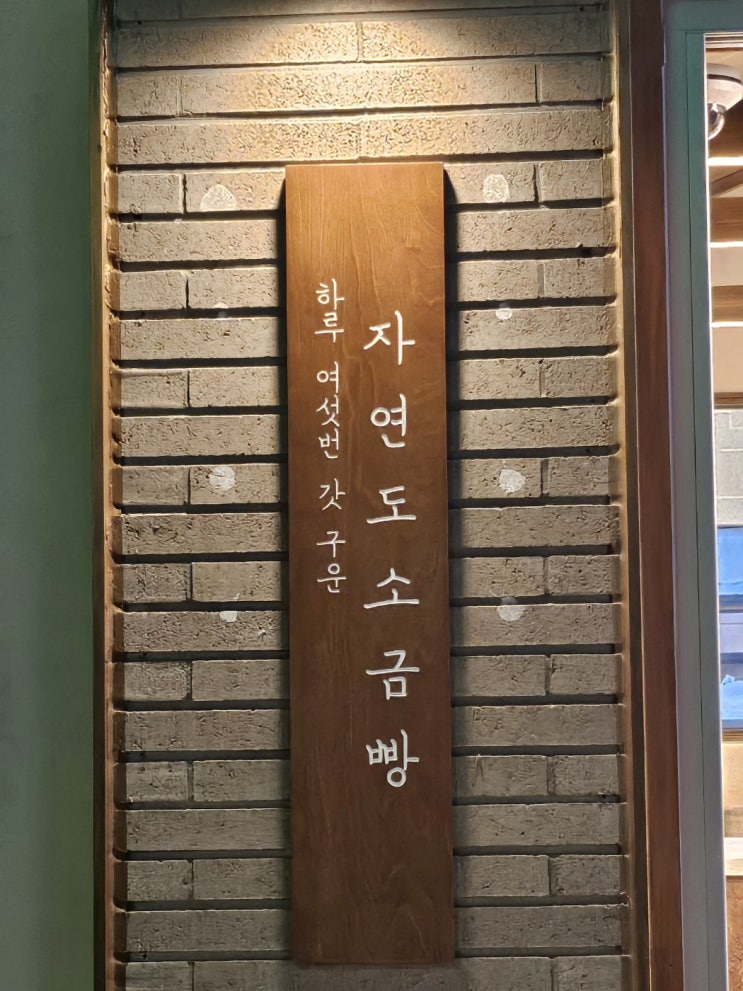 자연도소금빵
하루 여섯번 갓 구운